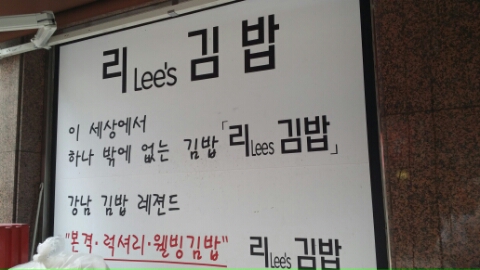 리Lee's 김밥
이 세상에서
하나 밖에 없는 김밥「리Lees 김밥」
강남 김밥 레젼드
"본격·럭셔리·웰빙김밥" 리Lee's 김밥